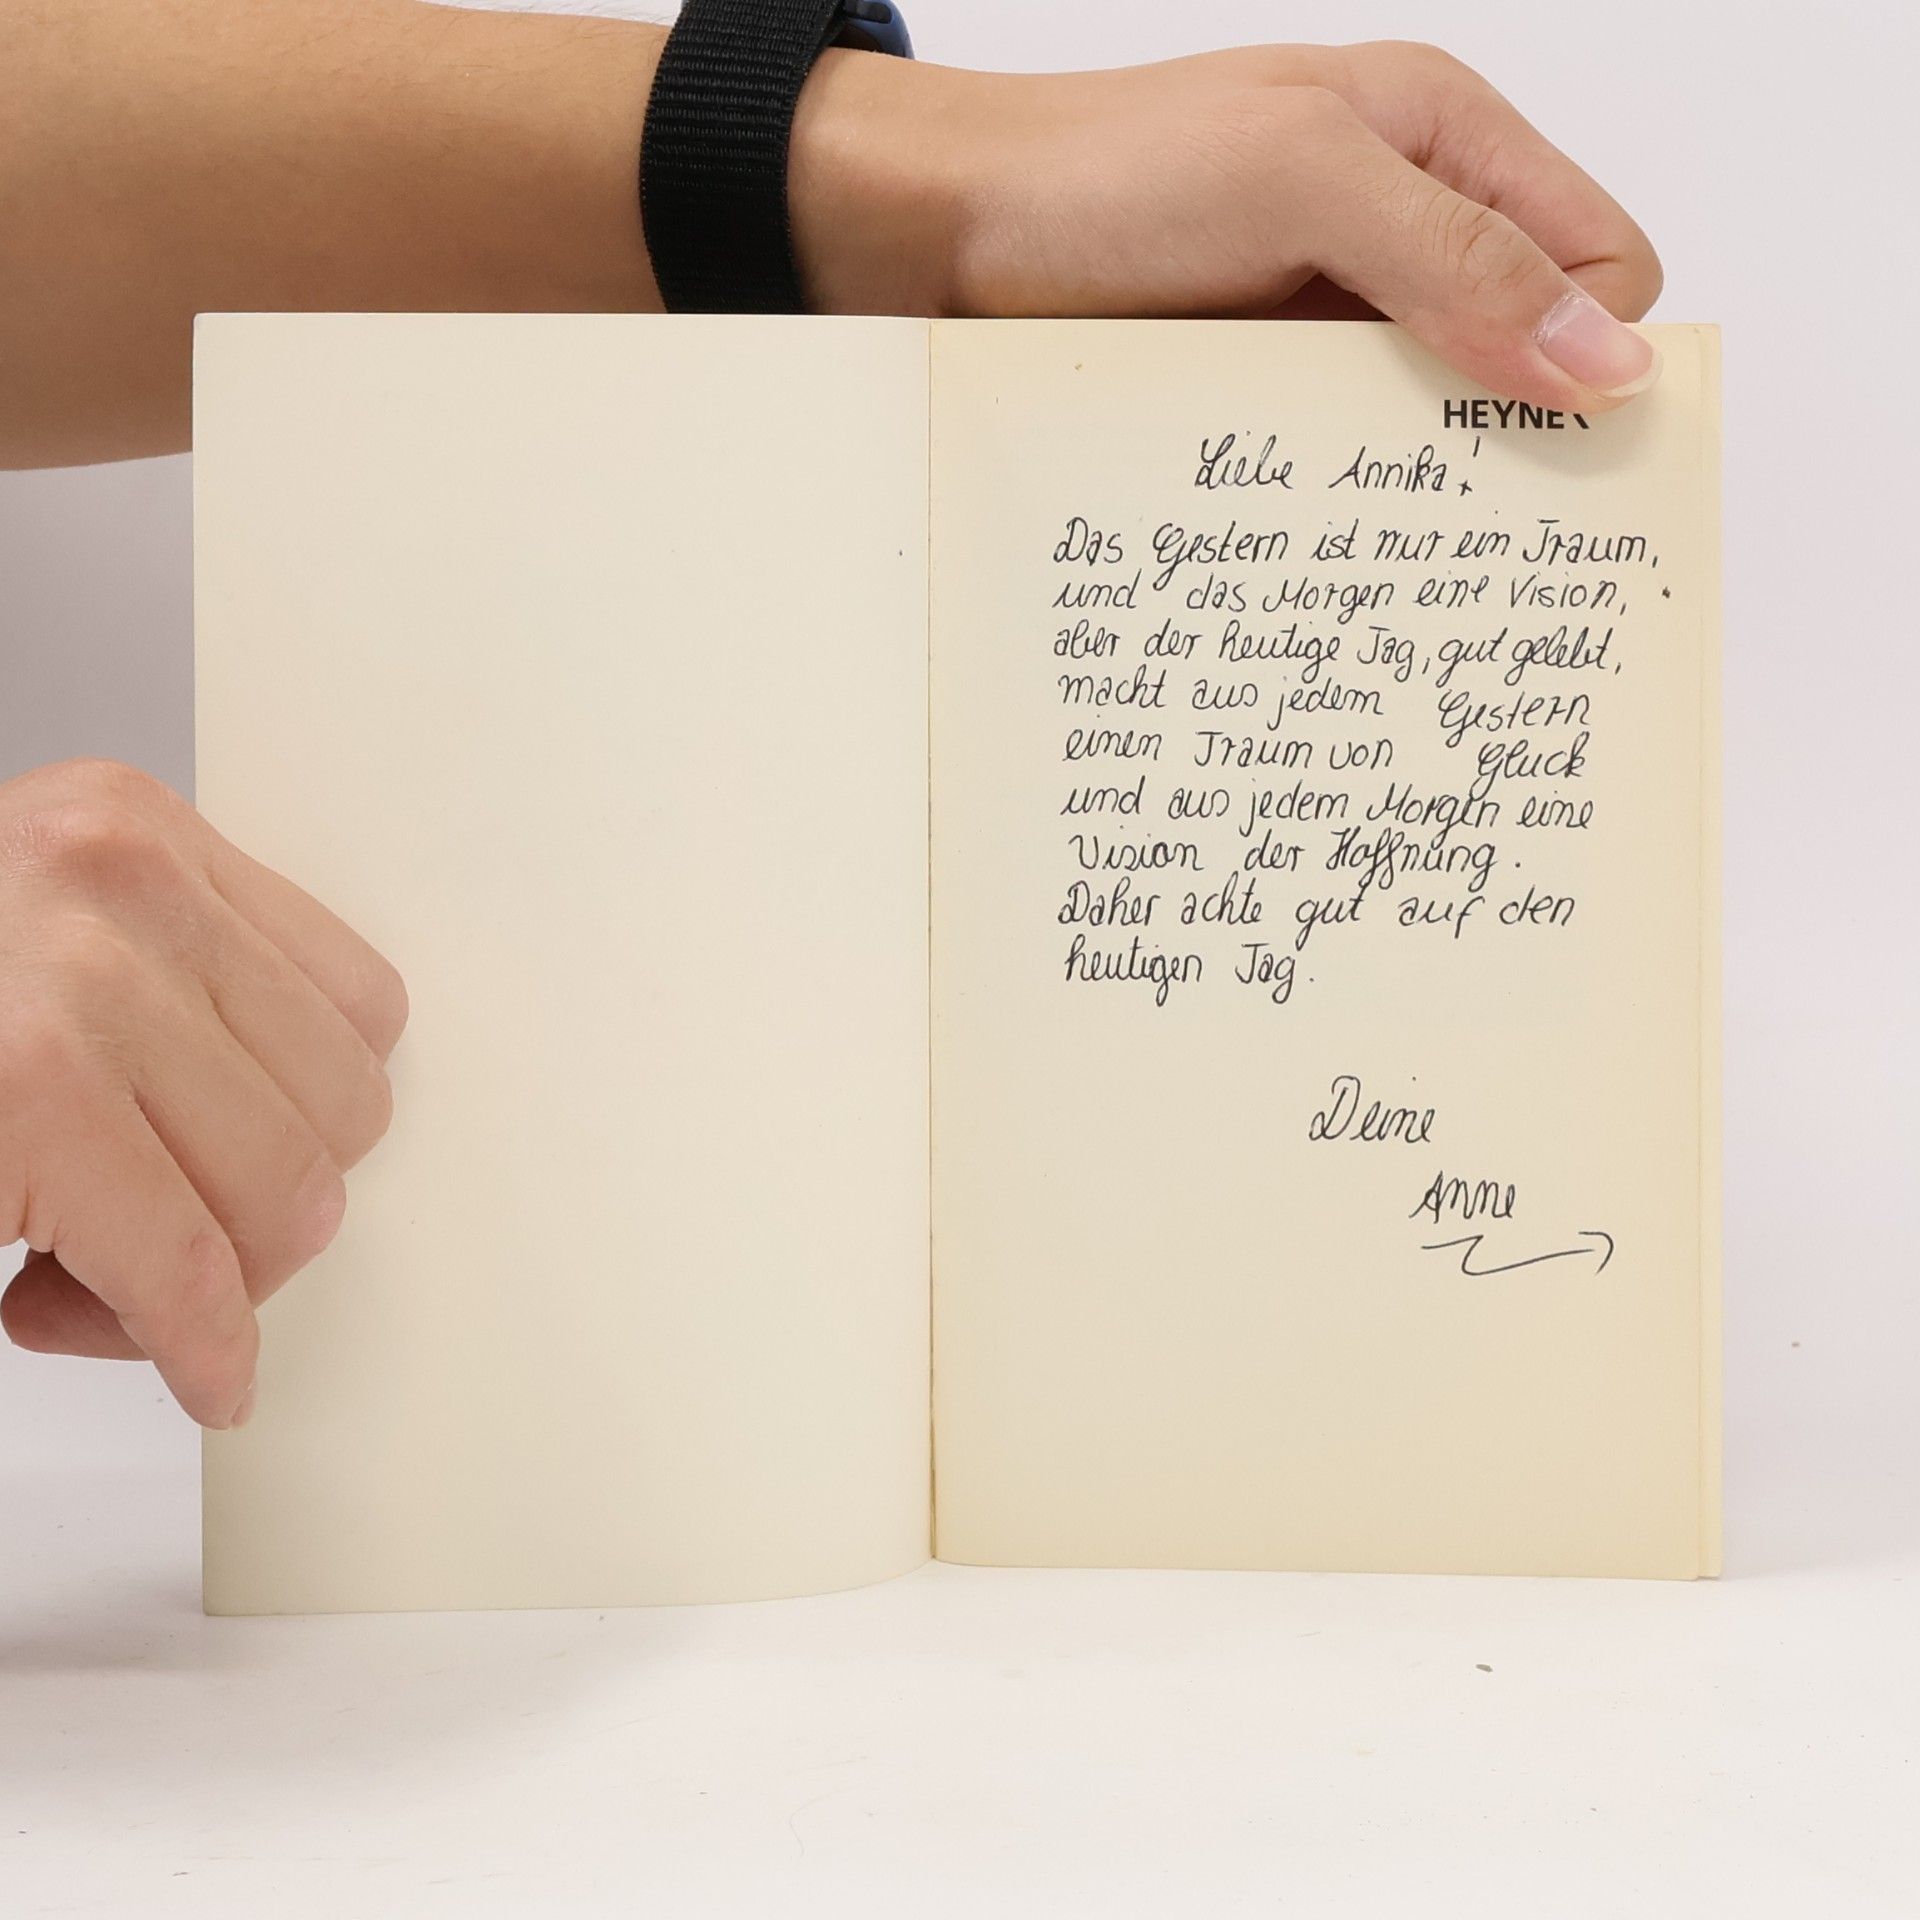 HEYNE<
Liebe Annika!
Das Gestern ist nur ein Traum,
und das Morgen eine Vision,
aber der heutige Tag, gut gelebt,
macht aus jedem Gestern
einen Traum von Gluck
und aus jedem Morgen eine
Vision der Hoffnung.
Daher achte gut auf den
heutigen Tag.
Deine
Anne